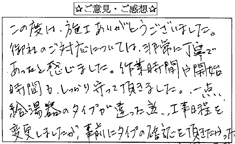 ☆ご意見・ご感想☆
この度は、施工ありがとうございました。
御社のご対応については、非常に丁寧で
あったと感じました。作業時間や開始
時間も、しっかり守って頂きました。一点、
給湯器のタイプが違った為、工事日程を
変更しましたが、事前にタイプの確認を頂きたかった